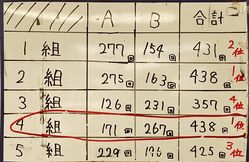 A B 合計
1 組 277回 154回 431回 2位
2 組 275回 163回 438回 1位
3 組 126回 231回 357回 4位
4 組 171回 267回 438回 1位
5 組 229回 196回 425回 3位